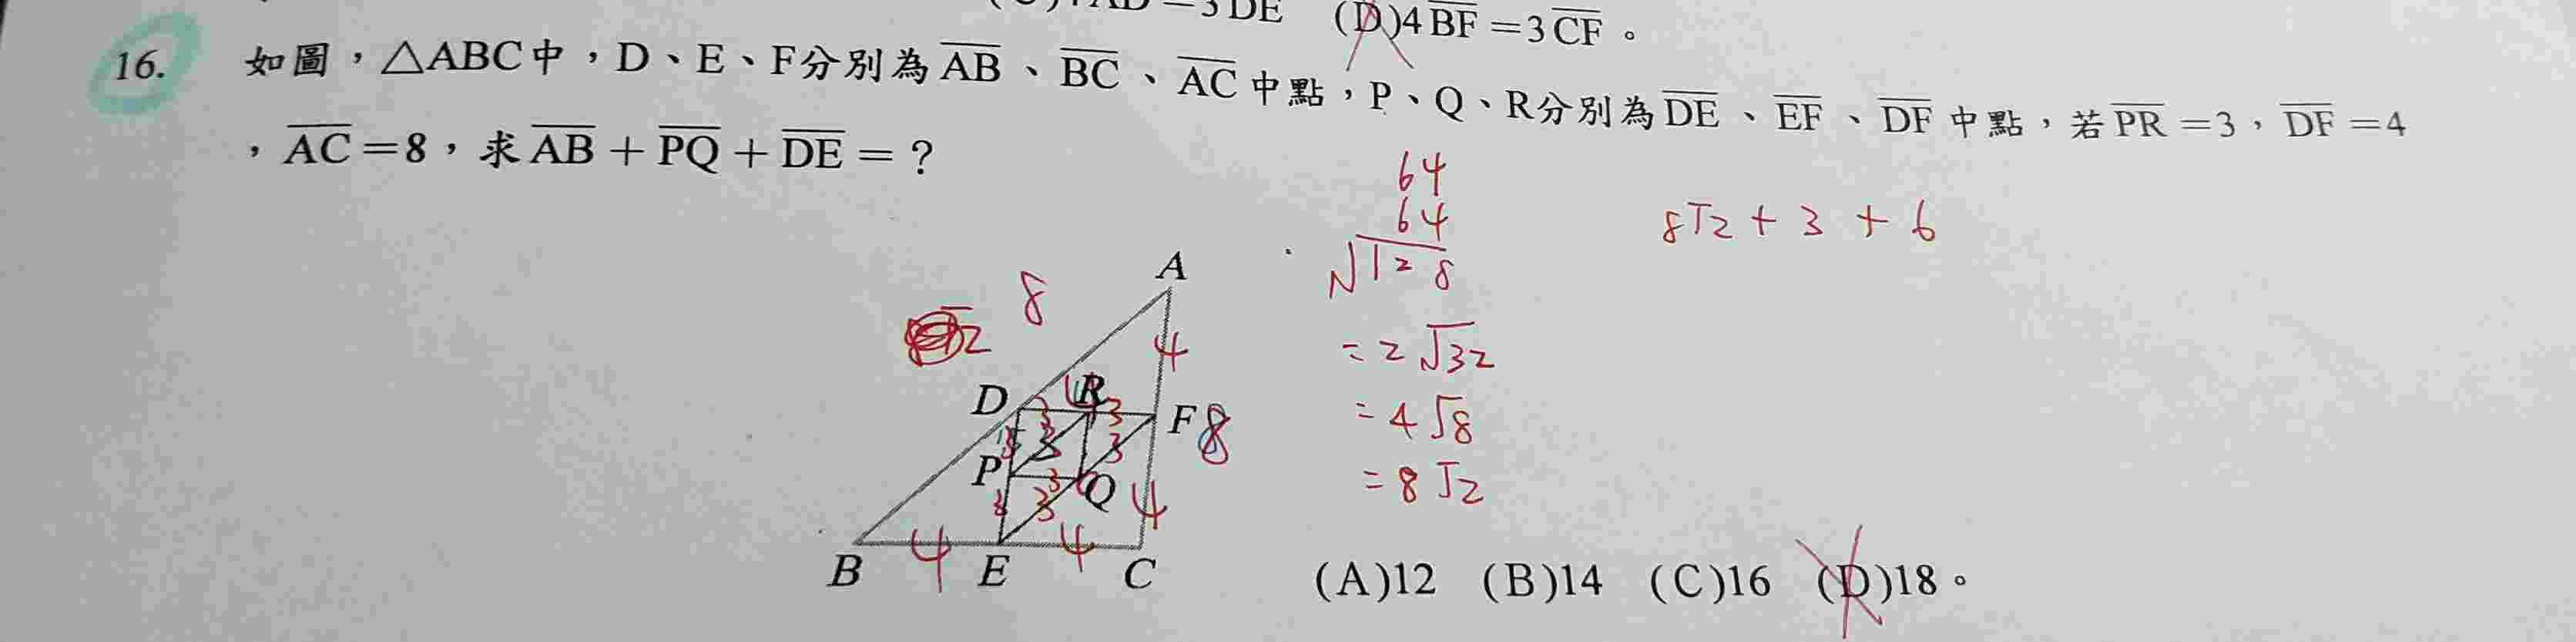 DE (D)4BF=3CF。
16. 如圖，△ABC中，D、E、F分別為AB、BC、AC中點，P、Q、R分別為DE、EF、DF中點，若PR=3，DF=4
，AC=8，求AB+PQ+DE=？
64
64
8√2 + 3 + 6
√128
= 2√32
= 4√8
= 8√2
A
8
4
D R F 8
P Q
4
B 4 E 4 C
(A)12 (B)14 (C)16 (D)18。